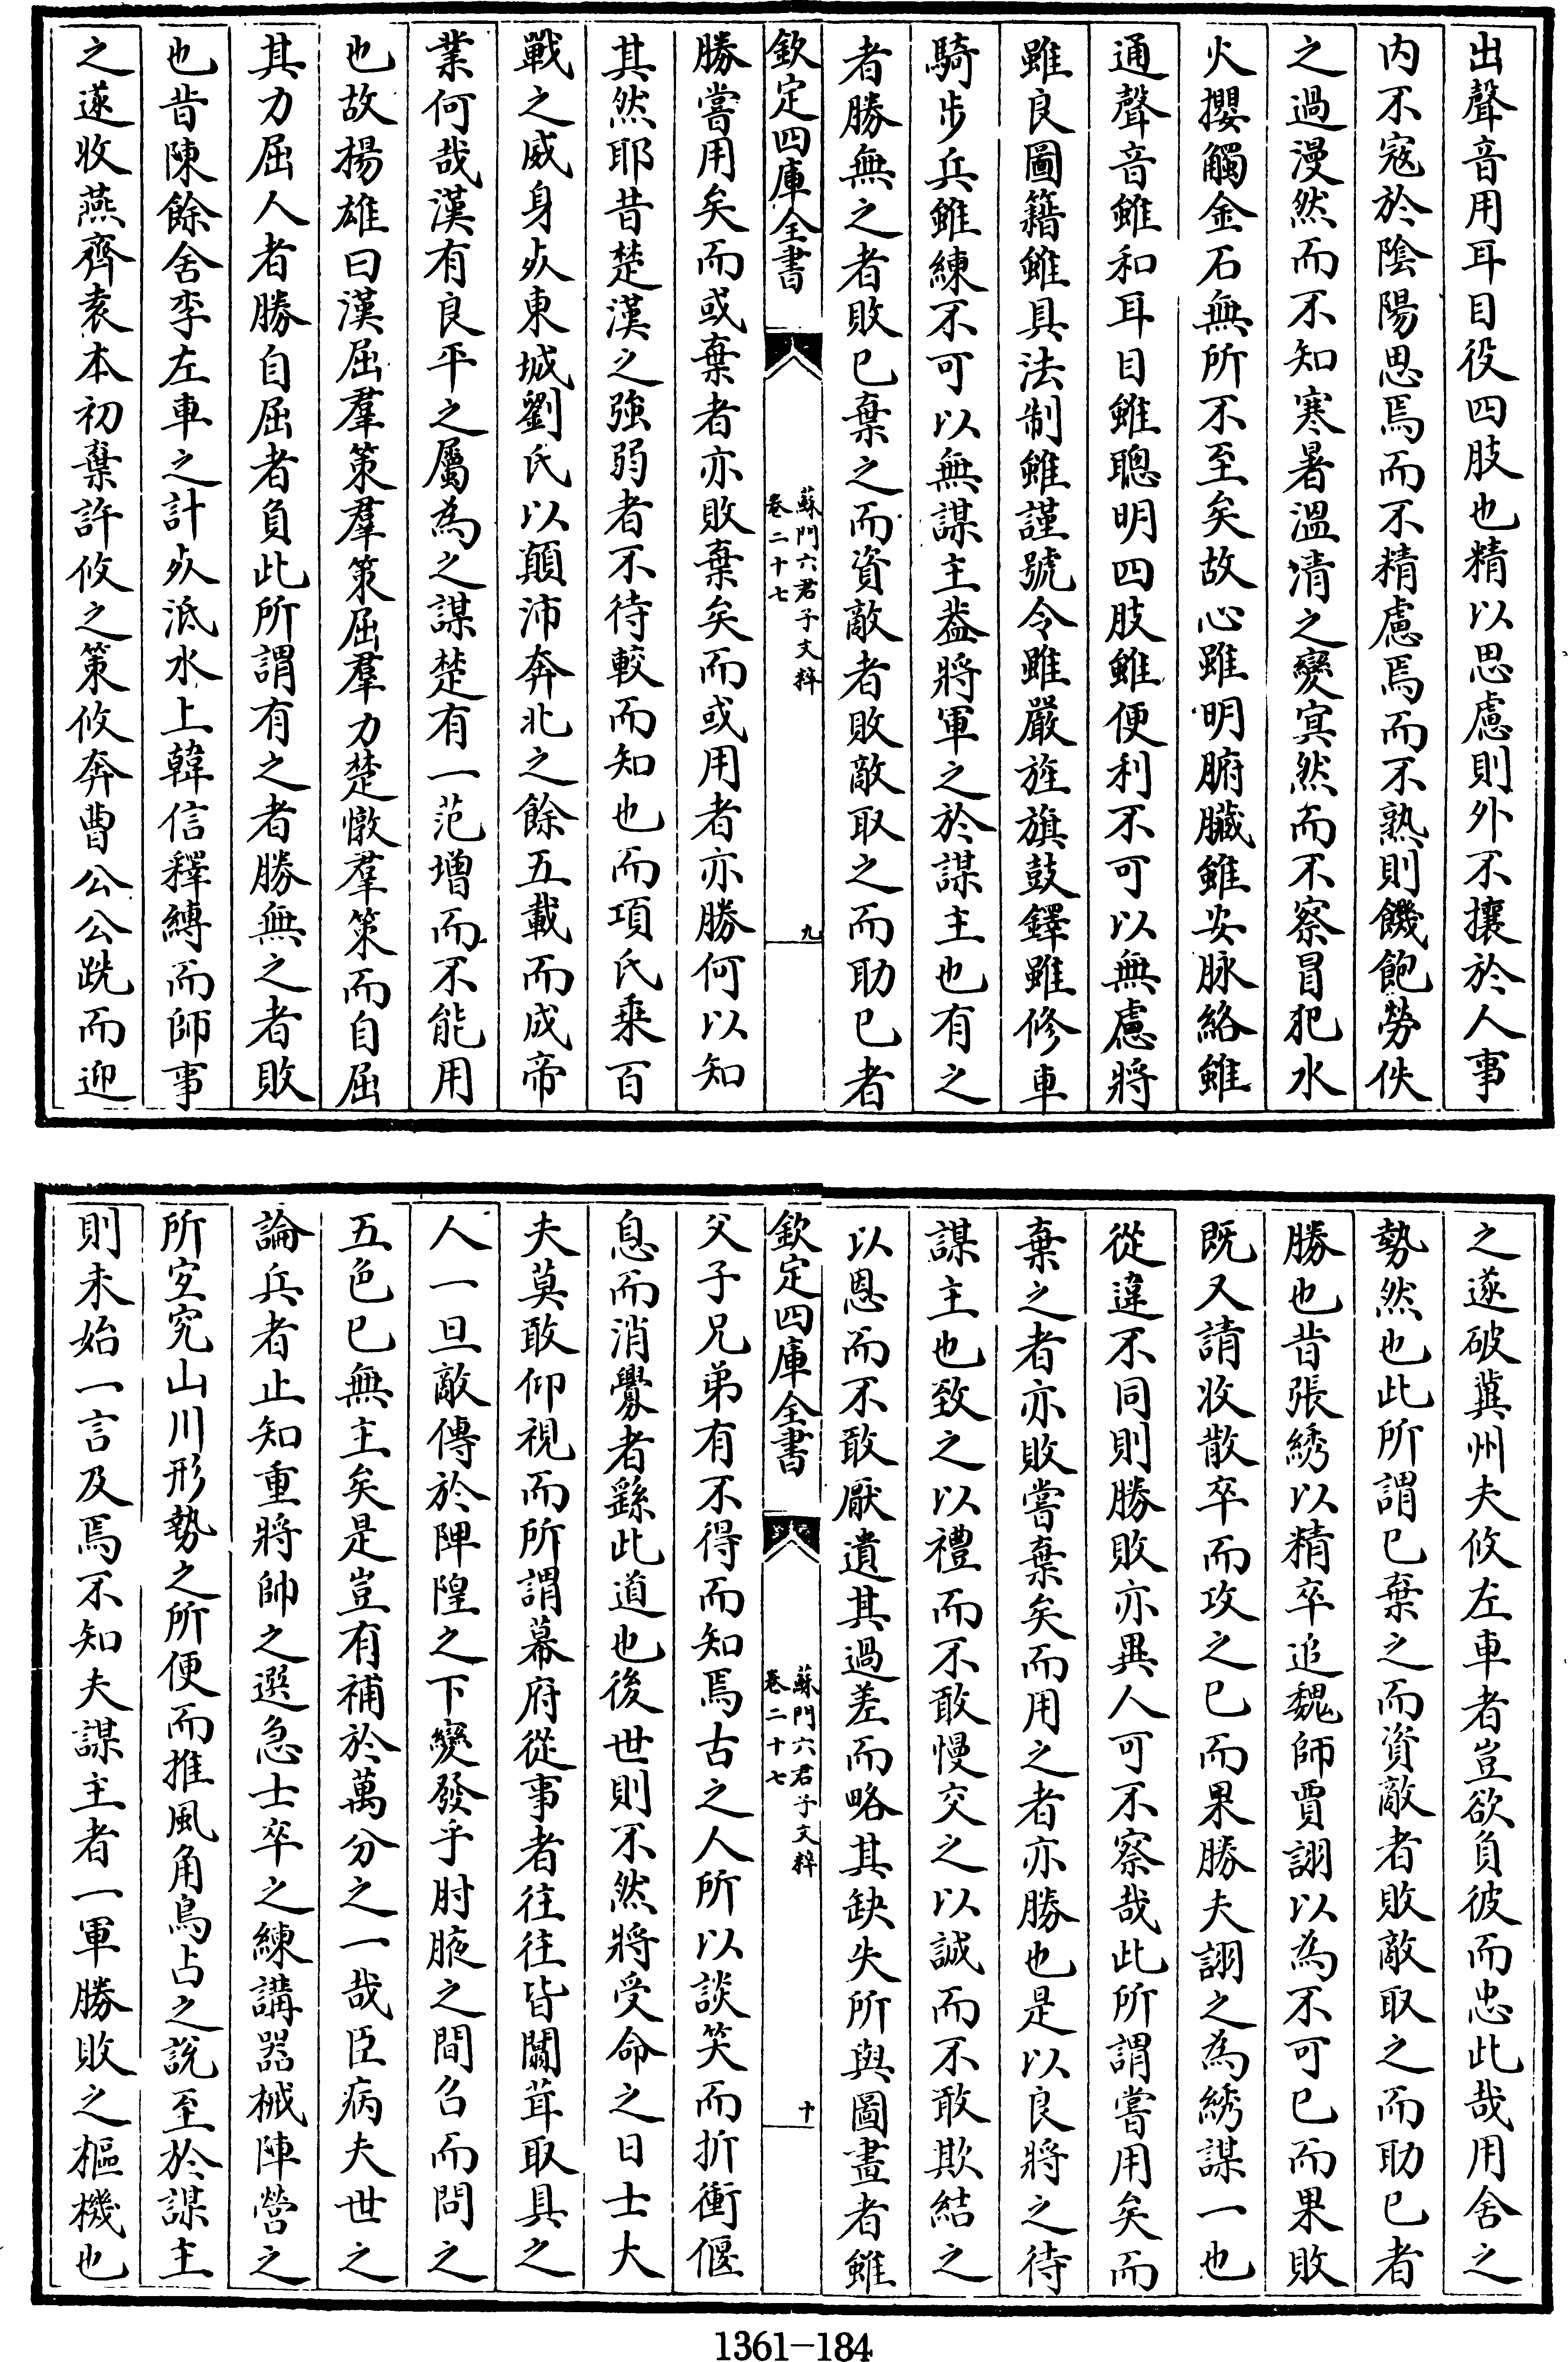 出聲音用耳目役四肢也精以思慮則外不攘於人事
内不寇於陰陽思焉而不精慮焉而不熟則饑飽勞佚
之過漫然而不知寒暑溫凊之變㝠然而不察冒犯水
火攖觸金石無所不至矣故心雖明腑臟雖安脉絡雖
通聲音雖和耳目雖聰明四肢雖便利不可以無慮將
雖良圖籍雖具法制雖謹號令雖嚴旌旗鼓鐸雖修車
騎步兵雖練不可以無謀主葢將軍之於謀主也有之
者勝無之者敗已棄之而資敵者敗敵取之而助已者
欽定四庫全書
蘇門六君子文粹
卷二十七
九
勝嘗用矣而或棄者亦敗棄矣而或用者亦勝何以知
其然耶昔楚漢之強弱者不待較而知也而項氏乗百
戰之威身㱔東城劉氏以顛沛奔北之餘五載而成帝
業何哉漢有良平之屬為之謀楚有一范增而不能用
也故揚雄曰漢屈羣策羣策屈羣力楚憞羣策而自屈
其力屈人者勝自屈者負此所謂有之者勝無之者敗
也昔陳餘舍李左車之計㱔泜水上韓信釋縛而師事
之遂收燕齊袁本初棄許攸之策攸奔曹公公跣而迎
之遂破冀州夫攸左車者豈欲負彼而忠此哉用舍之
勢然也此所謂已棄之而資敵者敗敵取之而助已者
勝也昔張綉以精卒追魏師賈詡以為不可已而果敗
既又請收散卒而攻之已而果勝夫詡之為綉謀一也
從違不同則勝敗亦異人可不察哉此所謂嘗用矣而
棄之者亦敗嘗棄矣而用之者亦勝也是以良將之待
謀主也致之以禮而不敢慢交之以誠而不敢欺結之
以恩而不敢厭遺其過差而略其缺失所與圖畫者雖
欽定四庫全書
蘇門六君子文粹
卷二十七
十
父子兄弟有不得而知焉古之人所以談笑而折衝偃
息而消釁者繇此道也後世則不然將受命之日士大
夫莫敢仰視而所謂幕府從事者往往皆闒茸取具之
人一旦敵傅於陴隍之下變發乎肘腋之間召而問之
五色已無主矣是豈有補於萬分之一哉臣病夫世之
論兵者止知重將帥之選急士卒之練講器械陣營之
所宐究山川形勢之所便而推風角鳥占之說至於謀主
則未始一言及焉不知夫謀主者一軍勝敗之樞機也
1361-184